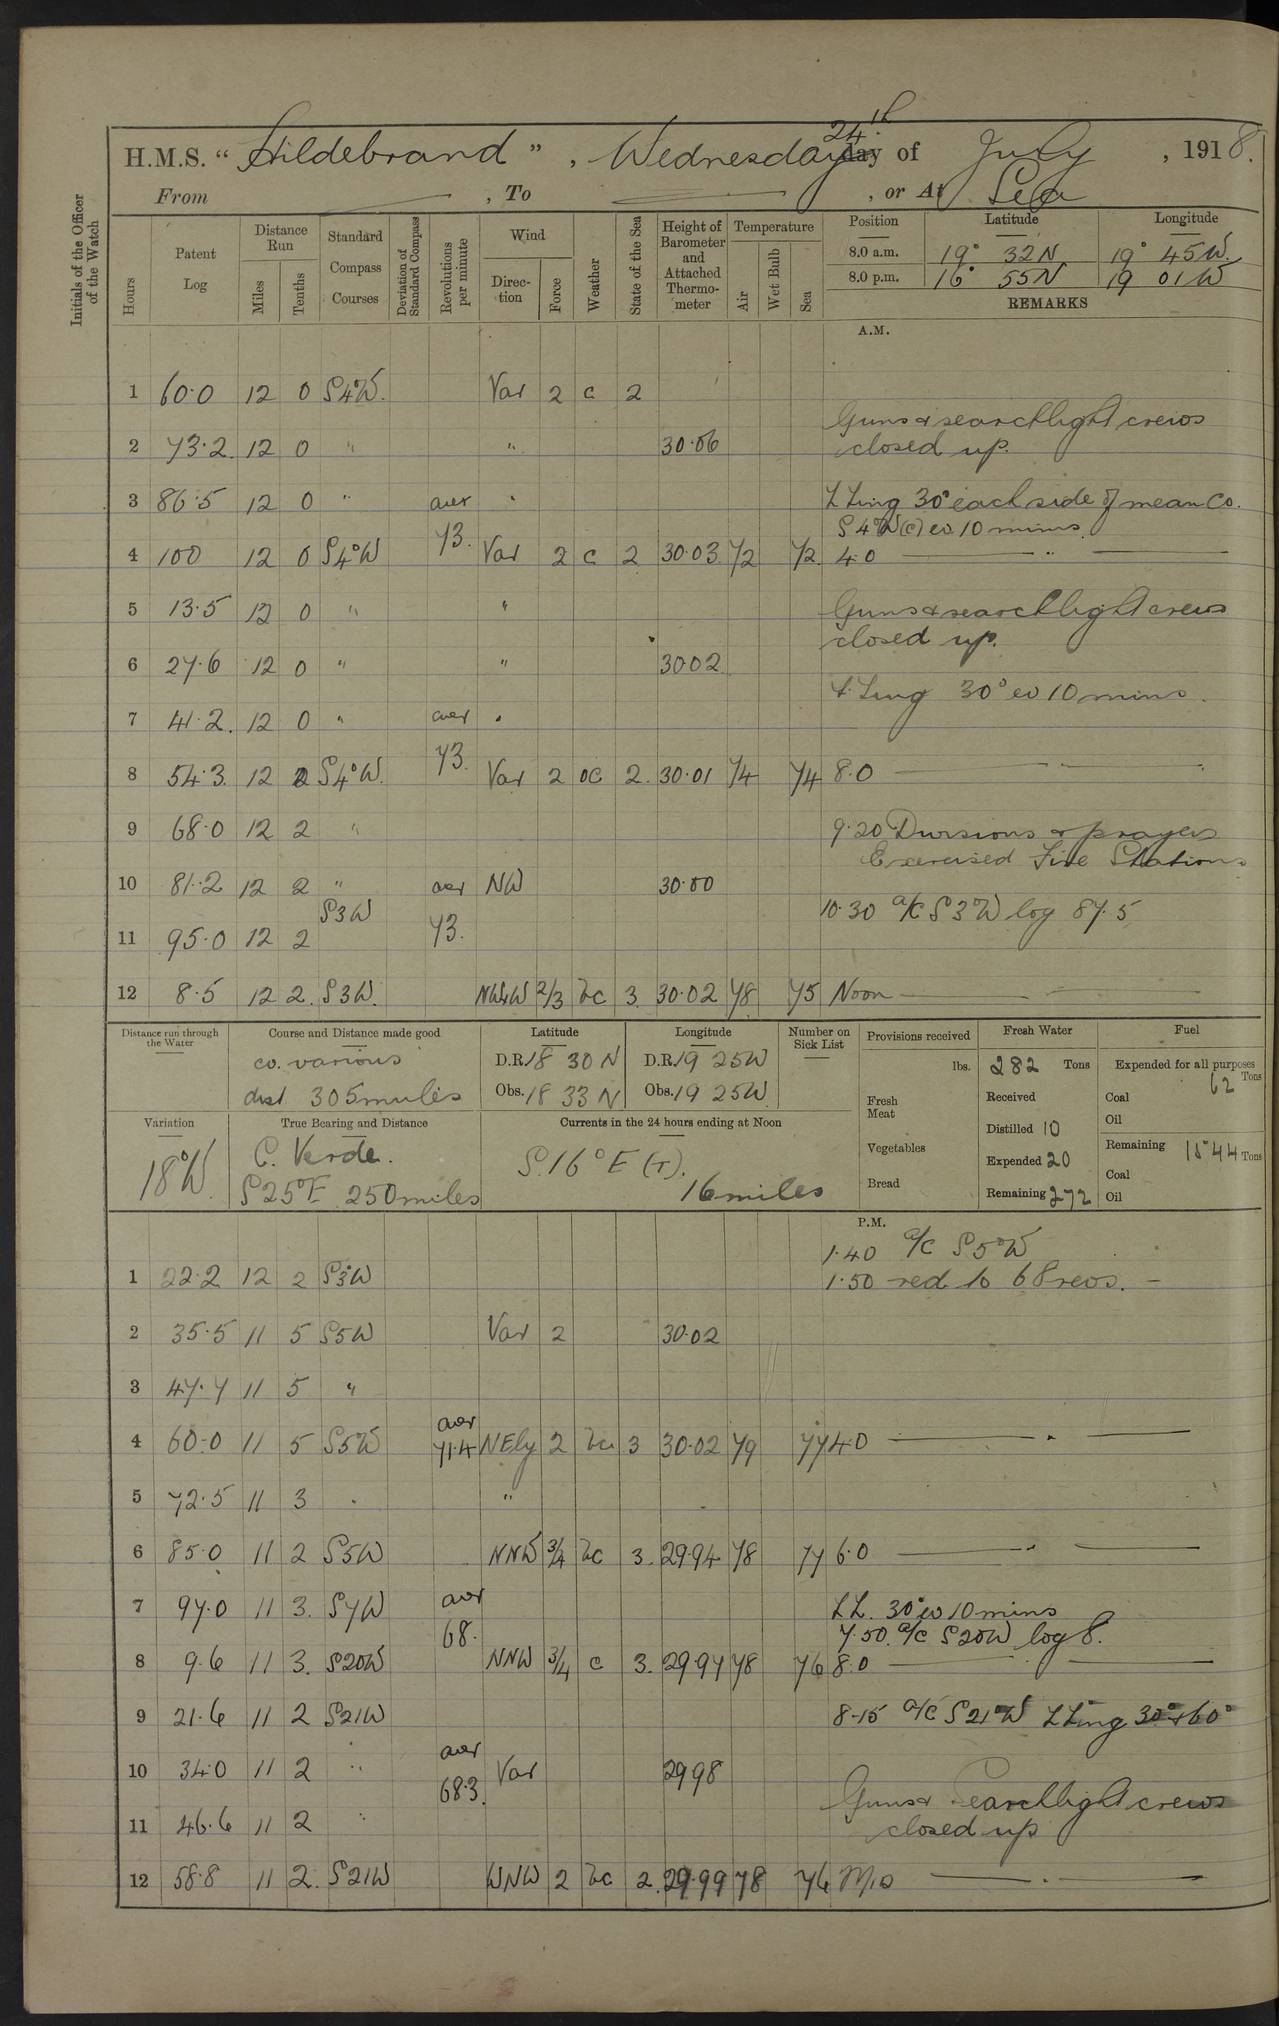 H.M.S. “Hildebrand”, Wednesday 24th day of July, 1918.
From , To , or At Sea
Initials of the Officer of the Watch
Hours
Patent Log
Distance Run
Miles
Tenths
Standard Compass Courses
Deviation of Standard Compass
Revolutions per minute
Wind
Direction
Force
Weather
State of the Sea
Height of Barometer and Attached Thermometer
Temperature
Air
Wet Bulb
Sea
Position Latitude Longitude
8.0 a.m. 19° 32N 19° 45W.
8.0 p.m. 16° 55N 19 01W
REMARKS
A.M.
1 60.0 12 0 S4°W. Var 2 c 2
Guns & searchlight crews
2 73.2. 12 0 " " 30.06 closed up.
3 86.5 12 0 " aver " ZZing 30° each side of mean Co.
S4°W(c) ev 10 mins.
4 100 12 0 S4°W 73. Var 2 c 2 30.03 72 72. 4.0 "
5 13.5 12 0 " " Guns & searchlight crews
closed up.
6 27.6 12 0 " " 30.02
ZZing 30° ev 10 mins.
7 41.2. 12 0 " aver "
8 54.3. 12 2 S4°W. 73. Var 2 oc 2. 30.01 74 74 8.0
9 68.0 12 2 " 9.20 Divisions & prayers
Exercised Fire Stations
10 81.2 12 2 " aver NW 30.00
S3W 10.30 a/c S3°W log 87.5
11 95.0 12 2 73.
12 8.5 12 2. S3W. NW 2/3 bc 3 30.02 78 75 Noon
Distance run through the Water
Course and Distance made good
co. various
dist 305 miles
Latitude
D.R. 18 30 N
Obs. 18 33 N
Longitude
D.R. 19 25W
Obs. 19 25W
Number on Sick List
Provisions received
lbs.
Fresh Meat
Vegetables
Bread
Fresh Water
282 Tons
Received
Distilled 10
Expended 20
Remaining 272
Fuel
Expended for all purposes
62 Tons
Coal
Oil
Remaining 1544 Tons
Coal
Oil
Variation
18°W.
True Bearing and Distance
C. Verde.
S25°E 250 miles
Currents in the 24 hours ending at Noon
S.16°E (T).
16 miles
P.M.
1.40 a/c S5°W
1 22.2 12 2 S3°W 1.50 red to 68 revs. —
2 35.5 11 5 S5W Var 2 30.02
3 47.7 11 5 "
aver
4 60.0 11 5 S5W 71.4 NEly 2 bc 3 30.02 79 77 4.0 "
5 72.5 11 3 " "
6 85.0 11 2 S5W NNW 3/4 bc 3. 29.94 78 77 6.0 "
7 97.0 11 3. S7W aver ZZ. 30° ev 10 mins
68. 7.50. a/c S20W log 8.
8 9.6 11 3. S20W NNW 3/4 c 3. 29.97 78 76 8.0
9 21.6 11 2 S21W 8-15 a/c S21°W ZZing 30° & 60°
aver
10 34.0 11 2 " 68.3. Var 29.98
Guns & Searchlight crews
11 46.6 11 2 " closed up
12 58.8 11 2. S21W WNW 2 bc 2. 29.99 78 76 M/d